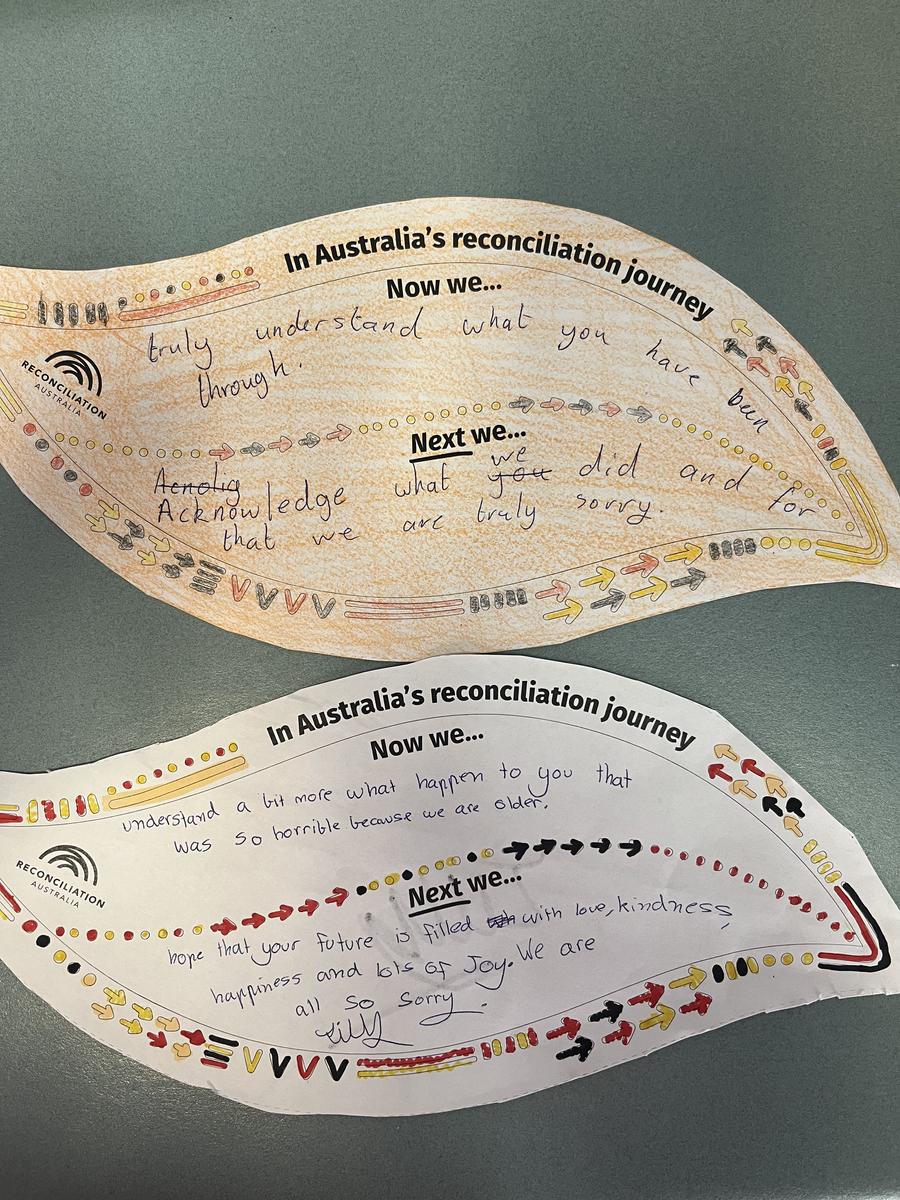 In Australia's reconciliation journey
Now we...
truly understand what you have been
through.
RECONCILIATION
AUSTRALIA
Next we...
Acnolig
we
Acknowledge what you did and for
that we are truly sorry.
In Australia's reconciliation journey
Now we...
understand a bit more what happen to you that
was so horrible because we are older.
RECONCILIATION
AUSTRALIA
Next we...
hope that your future is filled with love, kindness,
happiness and lots of Joy. We are
all so sorry.